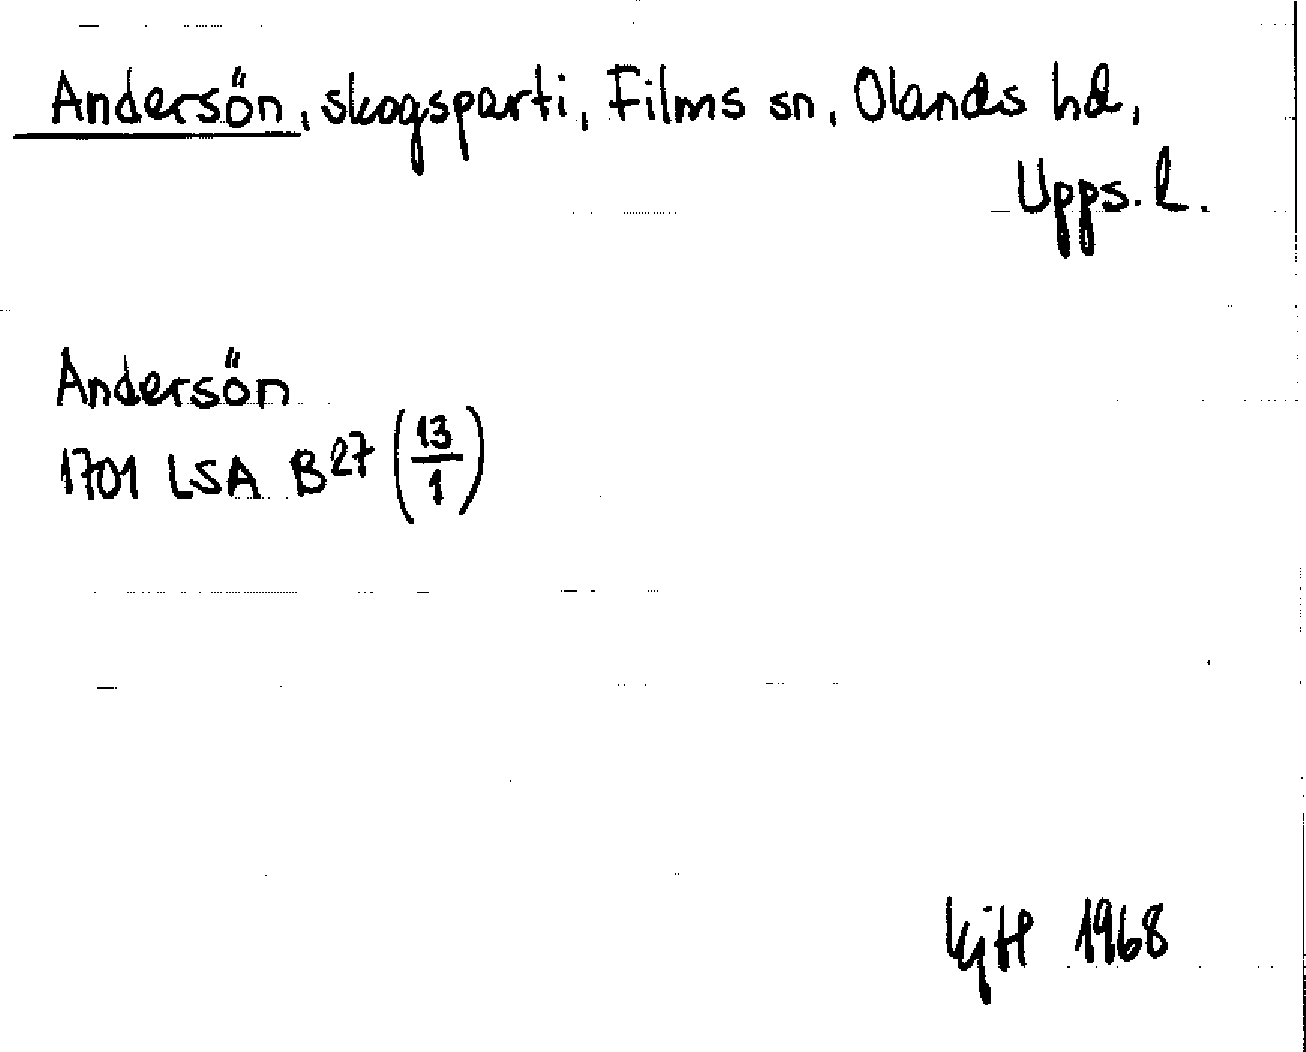 Andersön, skogsparti, Films sn, Olands hd,
Upps. l.
Andersön
1701 LSA B27 (13/1)
KjH 1968